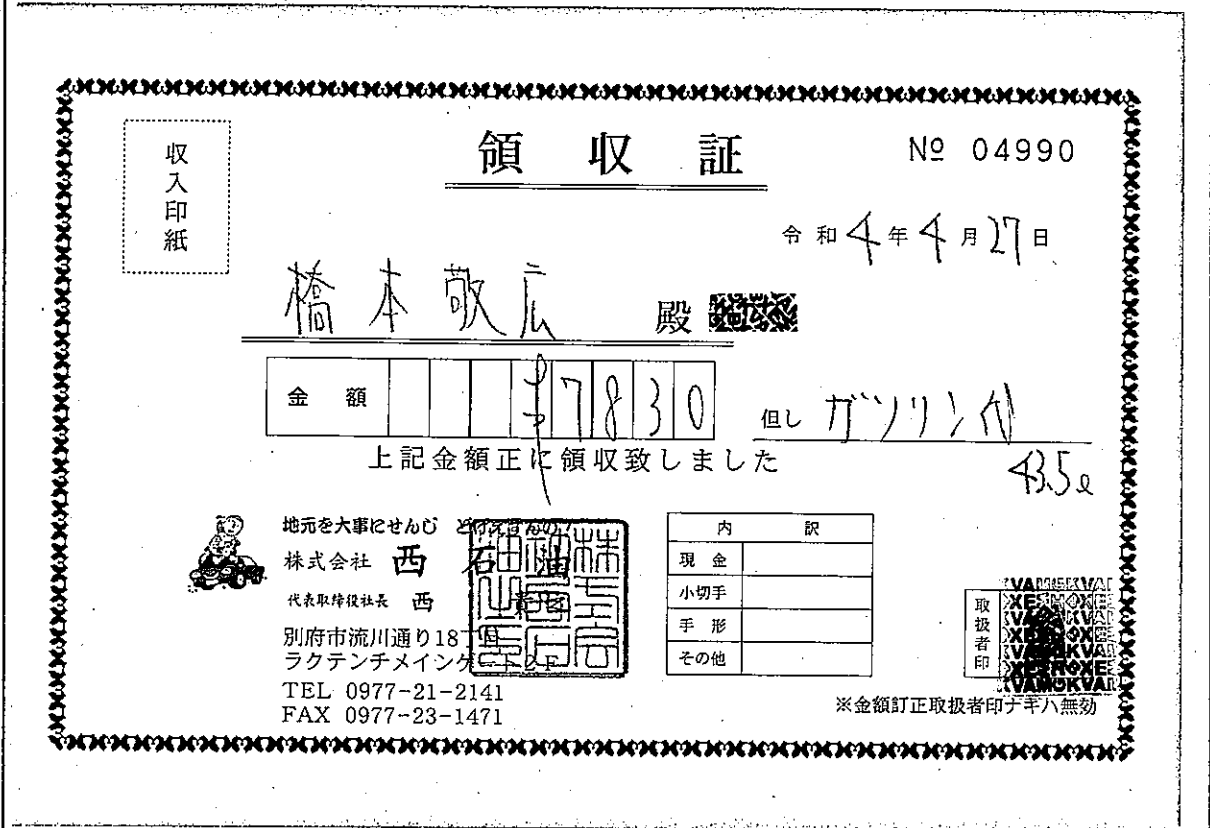 収入印紙
領収証
№ 04990
令和4年4月27日
橋本敬広 殿
金額 ¥7830
但し ガソリン代
43.5ℓ
上記金額正に領収致しました
地元を大事にせんじ どげえすんの!
株式会社 西石油
代表取締役社長 西
別府市流川通り18丁目
ラクテンチメインゲート2F
TEL 0977-21-2141
FAX 0977-23-1471
内訳
現金
小切手
手形
その他
取扱者印
※金額訂正取扱者印ナキハ無効